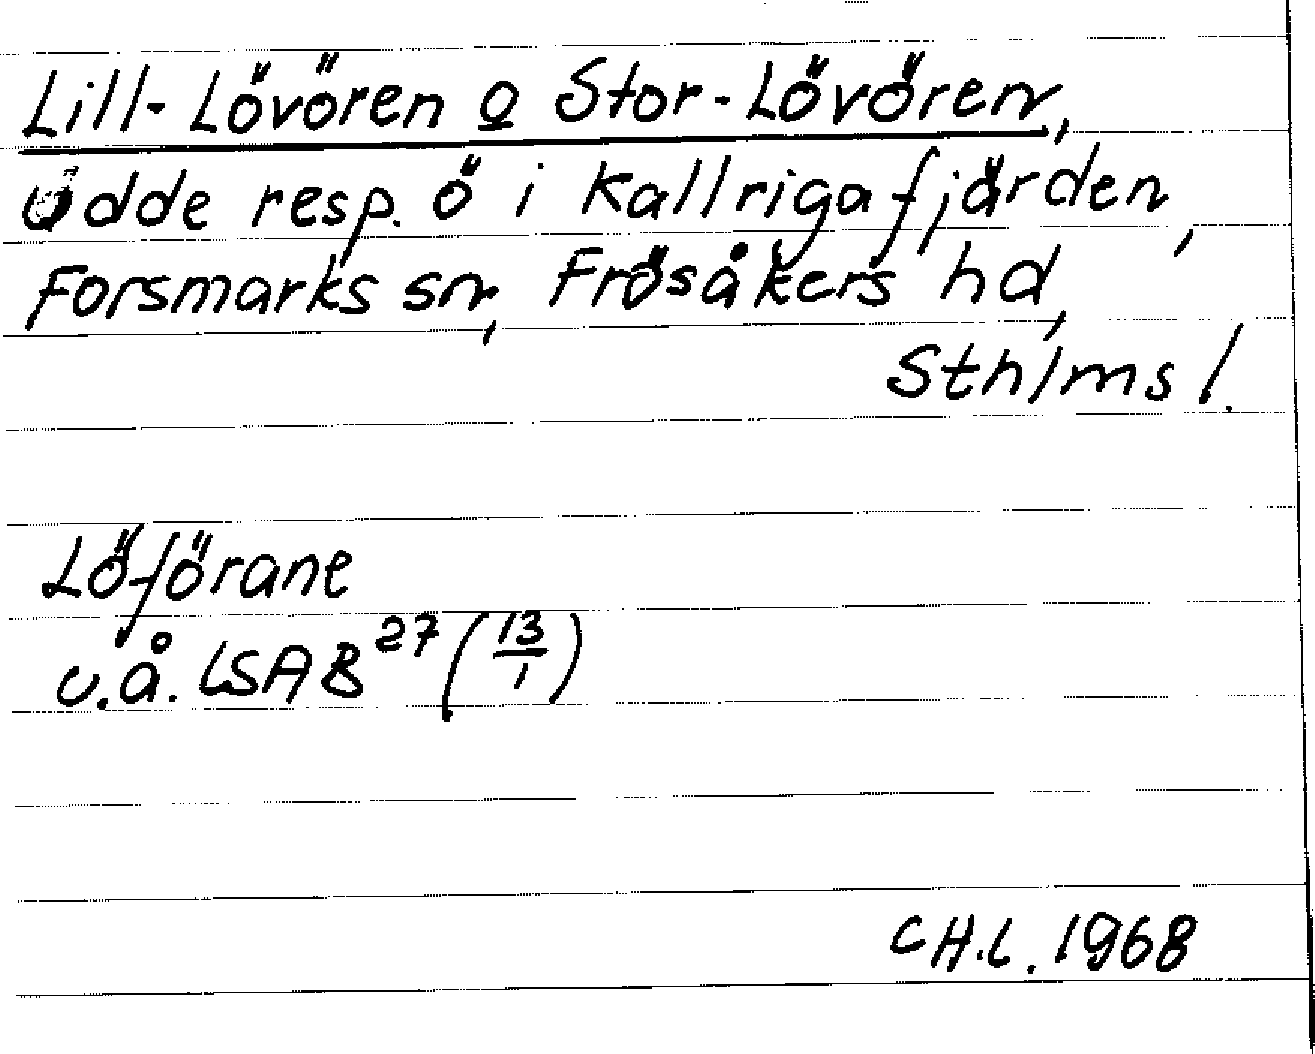 Lill-Lövören o Stor-Lövören,
udde resp. ö i Kallrigafjärden,
Forsmarks sn, Frösåkers hd,
Sthlms l.
Löförane
u.å. LSAB 27 (13/1)
CH.L. 1968